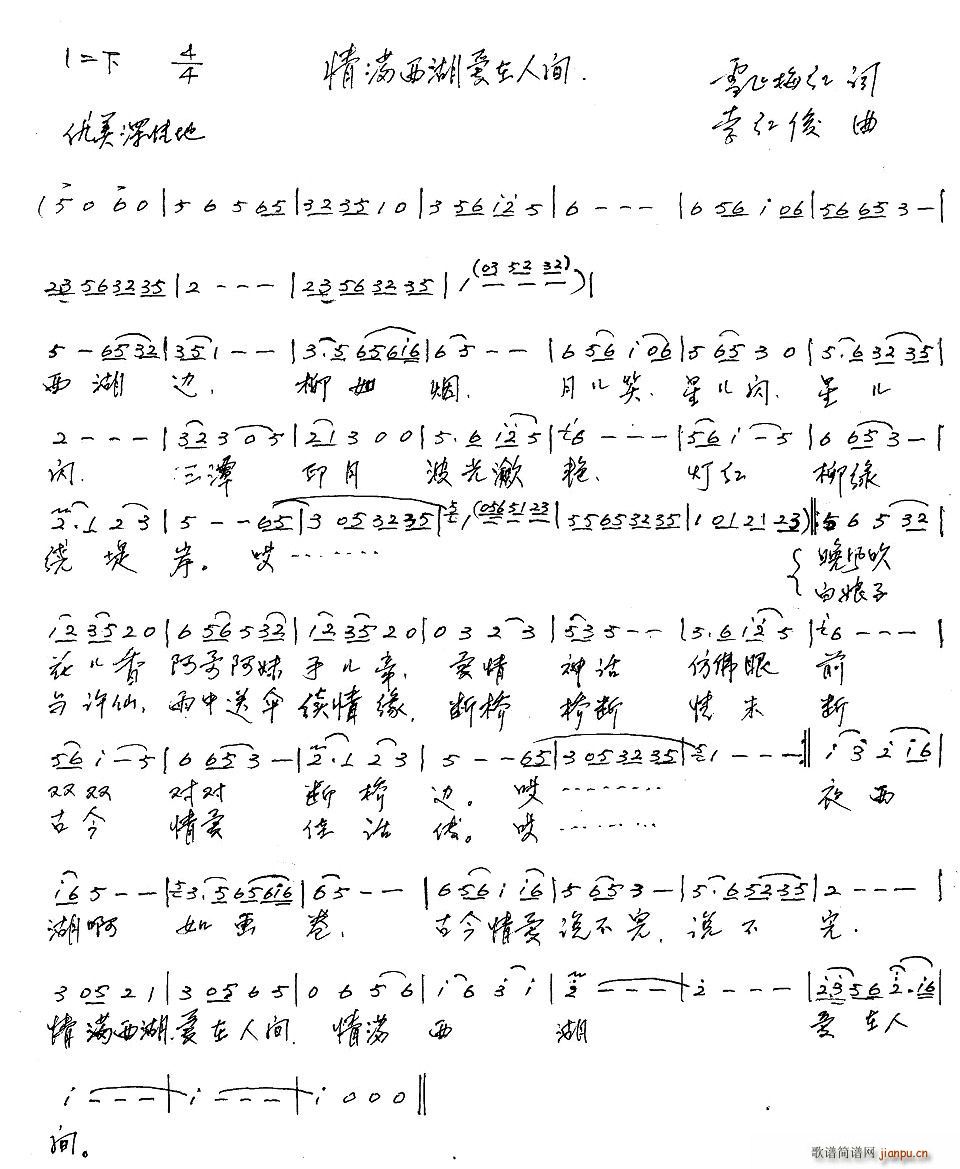 1=F 4/4 情满西湖爱在人间.
雪飞梅红 词
优美深情地 李红俊 曲
(5 0 6 0 | 5 6 5 65 | 3235 1 0 | 3 56 i2 5 | 6 - - - | 6 56 i 06 | 56 65 3 - |
23 56 32 35 | 2 - - - | 23 56 32 35 | 1 (03 52 32) - - - ) |
5 - 65 32 | 35 1 - - | 3.5 65 61 6 | 6 5 - - | 6 56 i 06 | 5 65 3 0 | 5.6 32 35 |
西湖 边, 柳如 烟. 月儿笑. 星儿闪. 星儿
2 - - - | 32 3 0 5 | 21 3 0 0 | 5.6 i2 5 | 6 - - - | 56 i - 5 | 6 65 3 - |
闪. 三潭 印月 波光潋 艳. 灯红 柳绿
2.1 2 3 | 5 - - 65 | 3 05 32 35 | 1 (056 51 23 | 55 65 32 35 | 1 01 21 23) ‖: 5 6 5 32 |
绕堤 岸。 哎………
晚风吹
白娘子
i2 35 2 0 | 6 56 5 32 | 12 35 2 0 | 0 3 2 3 | 53 5 - - | 5.6 i2 5 | 6 - - - |
花儿香 阿哥阿妹 手儿牵. 爱情 神话 仿佛眼 前
与许仙, 雨中送伞 续情缘. 断桥 桥断 情未 断
56 i - 5 | 6 65 3 - | 2.1 2 3 | 5 - - 65 | 3 05 32 35 | 1 - - - :‖ i 3 2 i6 |
双双 对对 断桥 边。 哎………
夜西
古今 情爱 佳话 传。 哎………
i6 5 - - | 3.5 65 61 6 | 65 - - | 6 56 i i6 | 5 65 3 - | 5.6 52 35 | 2 - - - |
湖啊 如画 卷, 古今情爱 说不完, 说不 完.
3 05 2 1 | 3 05 6 5 | 0 6 5 6 | i 6 3 i | 2 - - - | 2 - - - | 23 56 2.i 6 |
情满西湖. 爱在人间. 情满 西 湖 爱在人
i - - - | i - - - | i 0 0 0 ‖
间。
歌谱简谱网 jianpu.cn